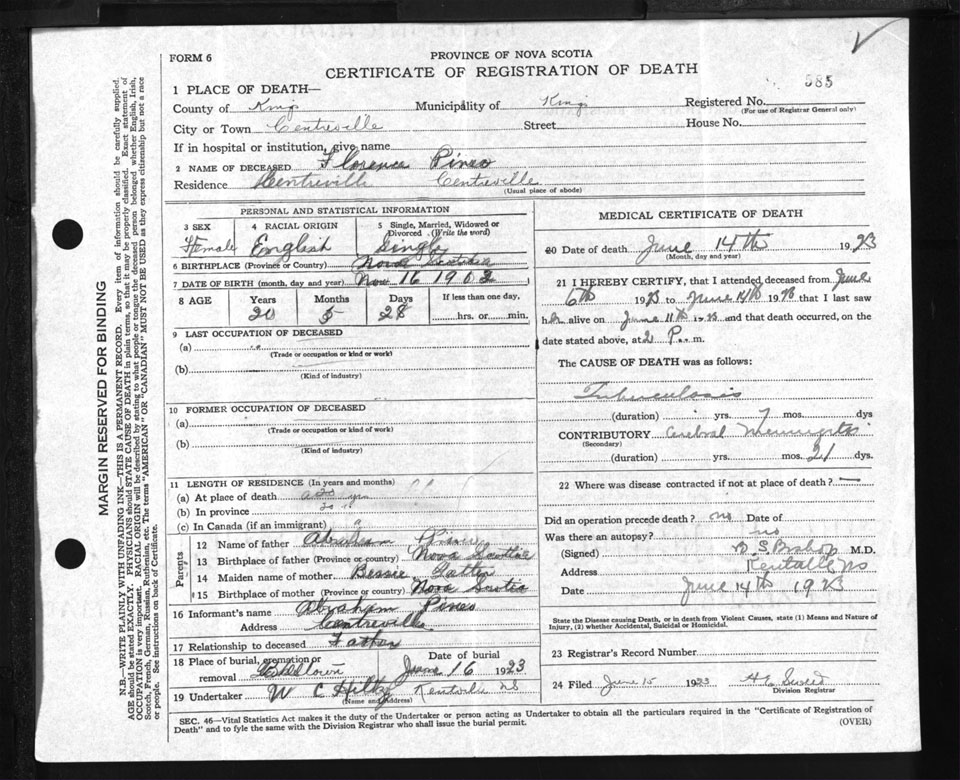 PROVINCE OF NOVA SCOTIA
FORM 6
CERTIFICATE OF REGISTRATION OF DEATH
585
1 PLACE OF DEATH—
County of Kings Municipality of Kings Registered No.
(For use of Registrar General only)
City or Town Centreville Street House No.
If in hospital or institution, give name
2 NAME OF DECEASED Florence Pineo
Residence Centreville Centreville
(Usual place of abode)
PERSONAL AND STATISTICAL INFORMATION
3 SEX 4 RACIAL ORIGIN 5 Single, Married, Widowed or Divorced (Write the word)
Female English Single
6 BIRTHPLACE (Province or Country) Nova Scotia
7 DATE OF BIRTH (month, day and year) Nov 16 1902
8 AGE Years Months Days If less than one day,
20 5 28 hrs. or min.
9 LAST OCCUPATION OF DECEASED
(a)
(Trade or occupation or kind or work)
(b)
(Kind of industry)
10 FORMER OCCUPATION OF DECEASED
(a)
(Trade or occupation or kind of work)
(b)
(Kind of industry)
11 LENGTH OF RESIDENCE (In years and months)
(a) At place of death 20 yrs
(b) In province 20 "
(c) In Canada (if an immigrant)
Parents
12 Name of father Abraham Pineo
13 Birthplace of father (Province or country) Nova Scotia
14 Maiden name of mother Bessie
15 Birthplace of mother (Province or country) Nova Scotia
16 Informant's name Abraham Pineo
Address Centreville
17 Relationship to deceased Father
18 Place of burial, cremation or removal Date of burial
June 16 1923
19 Undertaker W C Hiltz Kentville NS
(Name and Address)
MEDICAL CERTIFICATE OF DEATH
20 Date of death June 14th 1923
(Month, day and year)
21 I HEREBY CERTIFY, that I attended deceased from June
6th 1923 to June 14th 1923 that I last saw
her alive on June 11th 1923 and that death occurred, on the
date stated above, at 2 P. m.
The CAUSE OF DEATH was as follows:
Tuberculosis
(duration) yrs. 7 mos. dys
CONTRIBUTORY Cerebral Meningitis
(Secondary)
(duration) yrs. mos. 21 dys.
22 Where was disease contracted if not at place of death? —
Did an operation precede death? no Date of
Was there an autopsy? no
(Signed) B. S. Bishop M.D.
Address Kentville NS
Date June 14th 1923
State the Disease causing Death, or in death from Violent Causes, state (1) Means and Nature of Injury, (2) whether Accidental, Suicidal or Homicidal.
23 Registrar's Record Number
24 Filed June 15 1923
Division Registrar
SEC. 46—Vital Statistics Act makes it the duty of the Undertaker or person acting as Undertaker to obtain all the particulars required in the "Certificate of Registration of
Death" and to fyle the same with the Division Registrar who shall issue the burial permit.
(OVER)
MARGIN RESERVED FOR BINDING
N.B.—WRITE PLAINLY WITH UNFADING INK—THIS IS A PERMANENT RECORD. Every item of information should be carefully supplied.
AGE should be stated EXACTLY. PHYSICIANS should STATE CAUSE OF DEATH in plain terms, so that it may be properly classified. Exact statement of
OCCUPATION is very important. RACIAL ORIGIN will be described by stating to what people or tongue the deceased person belonged whether English, Irish,
Scotch, French, German, Russian, Ruthenian, etc. The terms "AMERICAN" OR "CANADIAN" MUST NOT BE USED as they express citizenship but not a race
or people. See instructions on back of Certificate.